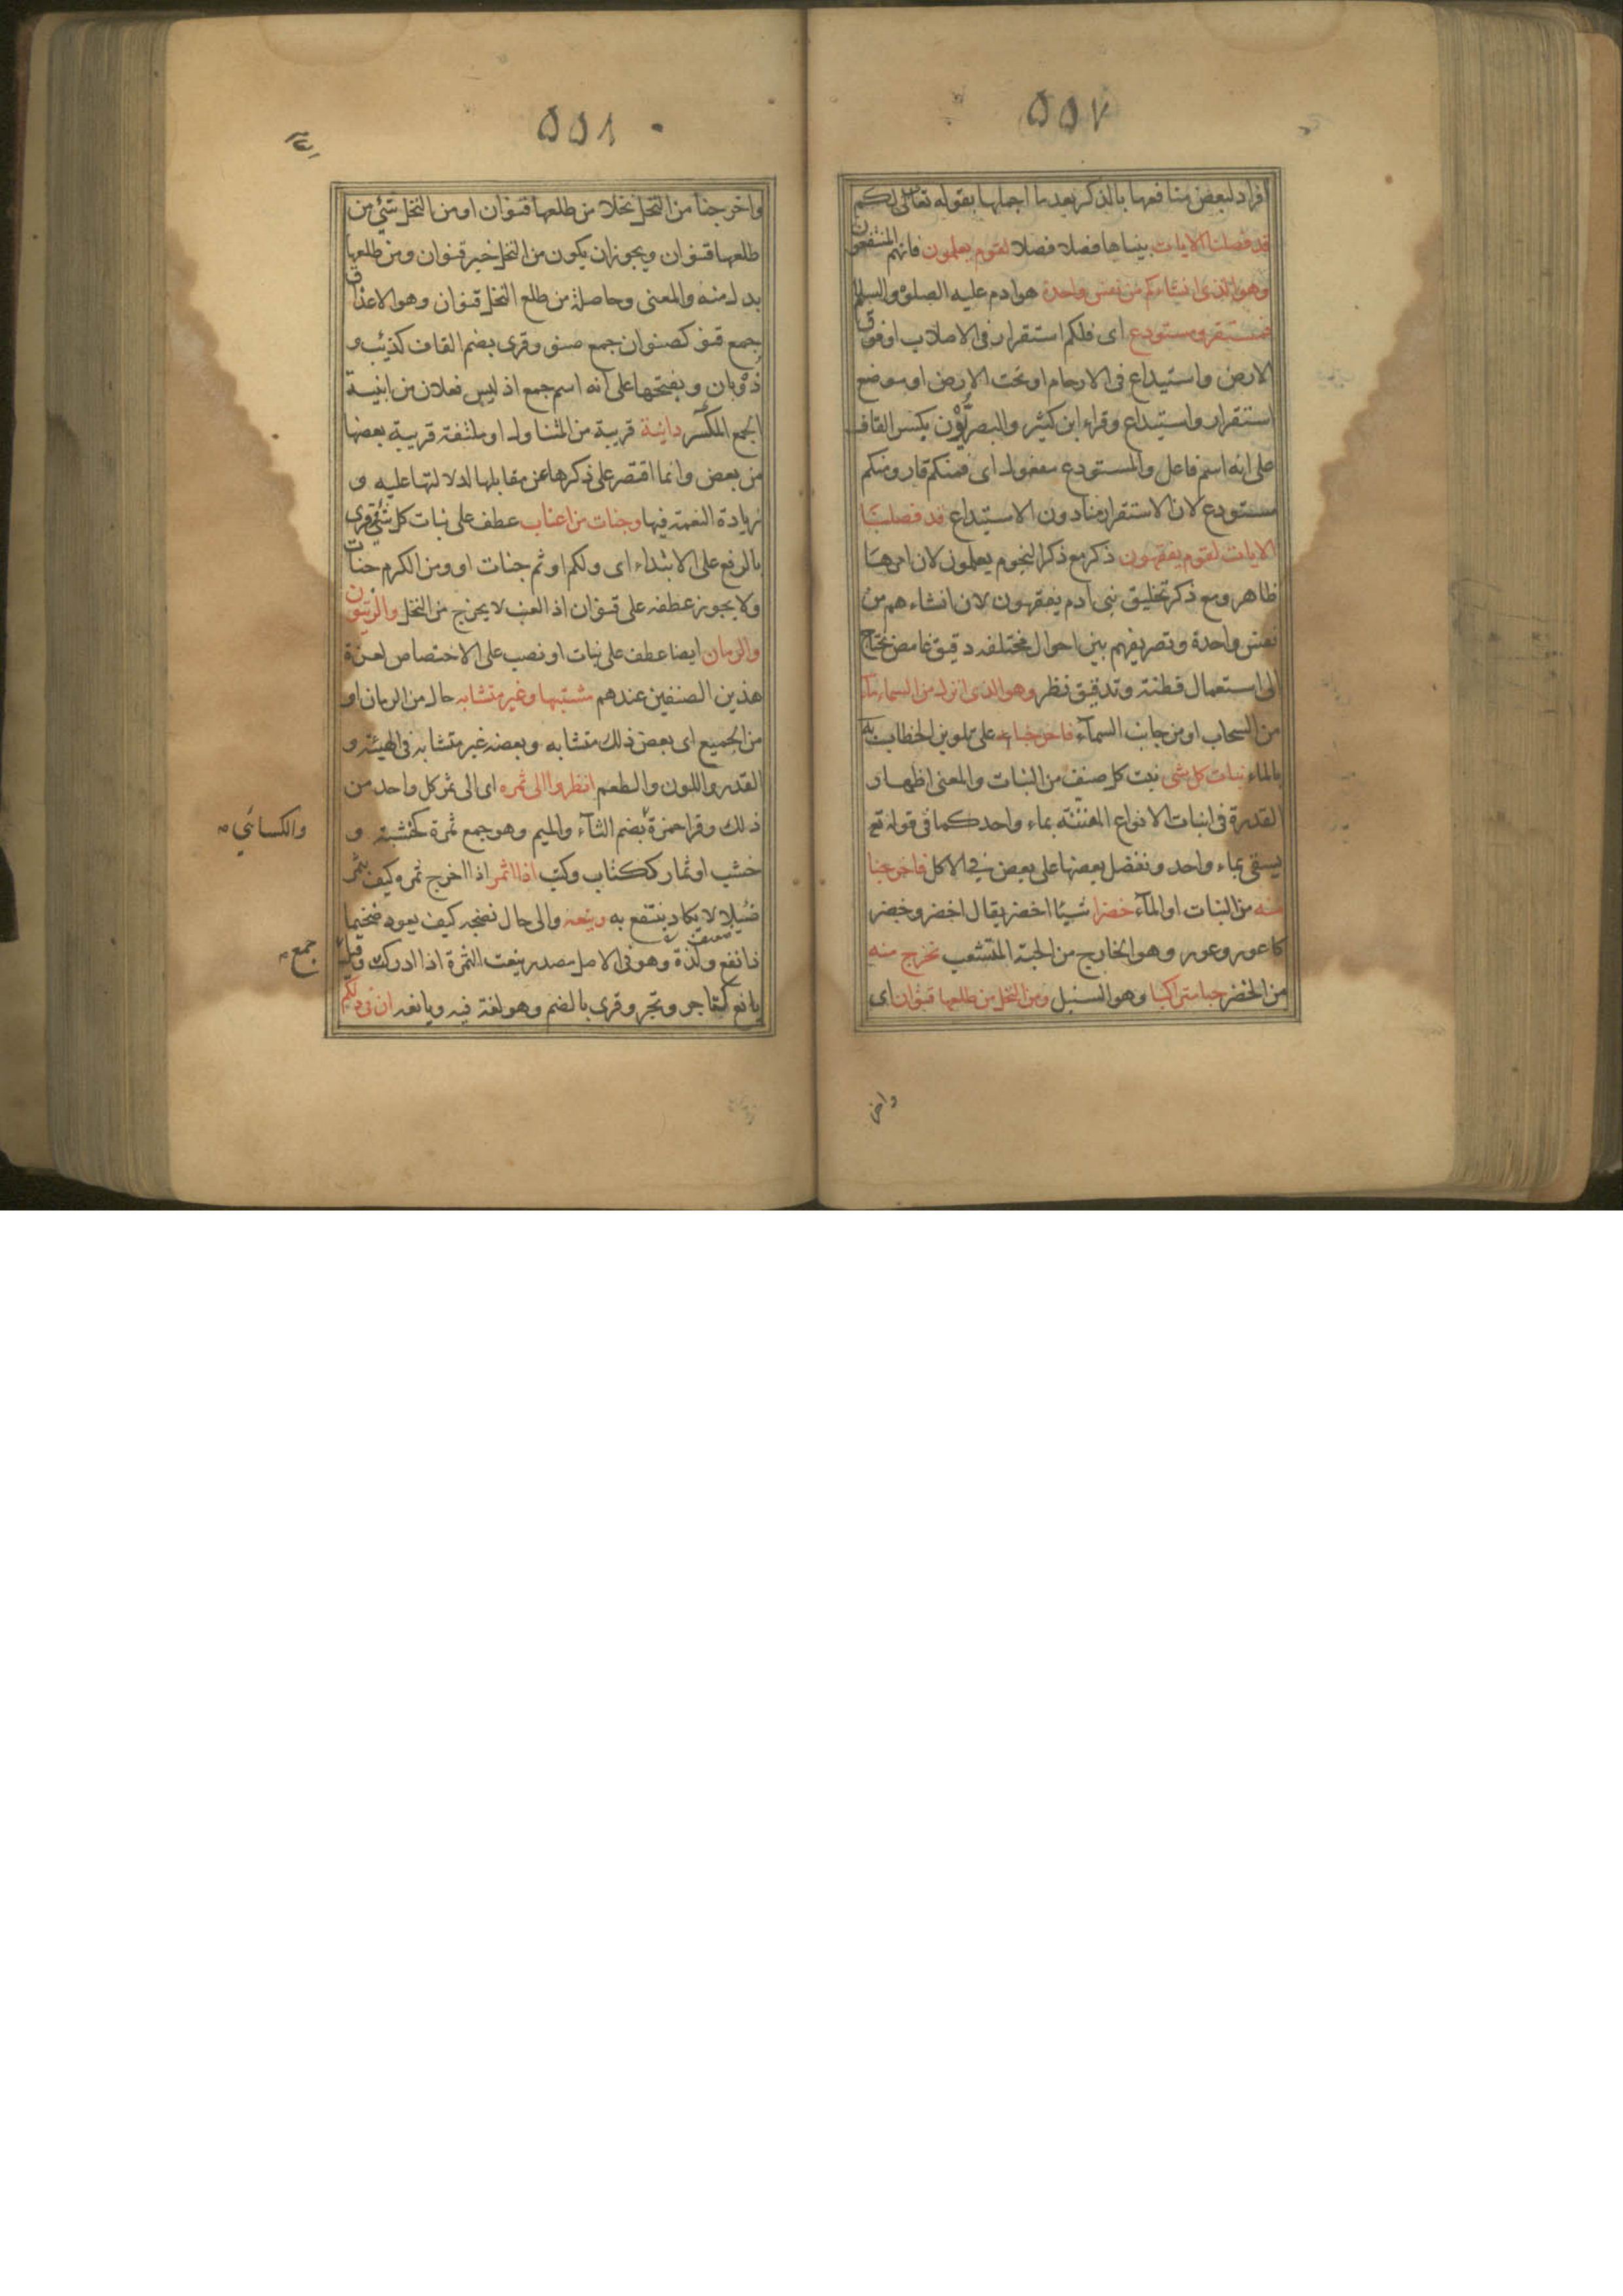 ٥٥٧
افراد لبعض منافعها بالذكر بعد ما اجملها بقوله تعالى لكم
قد فصلنا الايات بيناها فصلا فصلا لقوم يعلمون فانهم المنتفعون
وهو الذى انشاءكم من نفس واحدة هو ادم عليه الصلوة والسلم
فمستقر ومستودع اى فلكم استقرار فى الاصلاب او فوق
الارض واستيداع فى الارحام او تحت الارض او موضع
استقرار واستيداع وقراء ابن كثير والبصريّون بكسر القاف
على انه اسم فاعل والمستودع مفعول اى فمنكم قار ومنكم
مستودع لان الاستقرار منا دون الاستيداع قد فصلنا
الايات لقوم يفقهون ذكر مع ذكر النجوم يعلمون لان امرها
ظاهر ومع ذكر تخليق بنى ادم يفقهون لان انشاءهم من
نفس واحدة وتصريفهم بين احوال مختلفه دقيق غامض يحتاج
الى استعمال فطنة وتدقيق نظر وهو الذى انزل من السماء ماء
من السحاب او من جانب السمآء فاخرجنا على تلوين الخطاب به
بالماء نبات كل شى نبت كل صنف من النبات والمعنى اظهار
القدرة فى انبات الانواع المفننة بماء واحد كما فى قوله تع
يسقى بماء واحد ونفضل بعضها على بعض فى الاكل فاخرجنا
منه من النبات او المآء خضرا شيئا اخضر يقال اخضر وخضر
كاعور وعور وهو الخارج من الحبة المتشعب نخرج منه
من الخضر حبا متراكبا وهو السنبل ومن النخل من طلعها قنوان اى
واخر
٥٥٨
واخرجنا من النخل نخلا من طلعها قنوان او من النخل شئ من
طلعها قنوان ويجوز ان يكون من النخل خبر قنوان ومن طلعها
بدل منه والمعنى وحاصلة من طلع النخل قنوان وهو الاعذاق
جمع قنو كصنوان جمع صنو وقرى بضم القاف كذئب و
ذؤبان وبفتحها على انه اسم جمع اذ ليس فعلان من ابنية
الجمع المكسر دانية قريبة من المتناول او ملتفة قريبة بعضها
من بعض وانما اقتصر على ذكرها عن مقابلها لدلالتها عليه و
زيادة النعمة فيها وجنات من اعناب عطف على نبات كل شئ وقرى
بالرفع على الابتداء اى ولكم او ثم جنات او ومن الكرم جنات
ولا يجوز عطفه على قنوان اذ العنب لا يخرج من النخل والزيتون
والرمان ايضا عطف على نبات او نصب على الاختصاص لعزة
هذين الصنفين عندهم مشتبها وغير متشابه حال من الرمان او
من الجميع اى بعض ذلك متشابه وبعضه غير متشابه فى الهيئة و
القدر واللون والطعم انظروا الى ثمره اى الى ثمر كل واحد من
ذلك وقرا حمزة بضم الثآء والميم وهو جمع ثمرة كخشبة و
والكسائي
خشب او ثمار ككتاب وكتب اذا اثمر اذا اخرج ثمره كيف يثمر
ضئيلا لا يكاد ينتفع به وينعه والى حال نضجه كيف يعود ضخيما
ذا نفع ولذة وهو فى الاصل مصدر ينعت الثمرة اذا ادركت وقيل
جمع
يانع كتاجر وتجر وقرى بالضم وهو لغة فيه ويانعه ان فى ذلكم